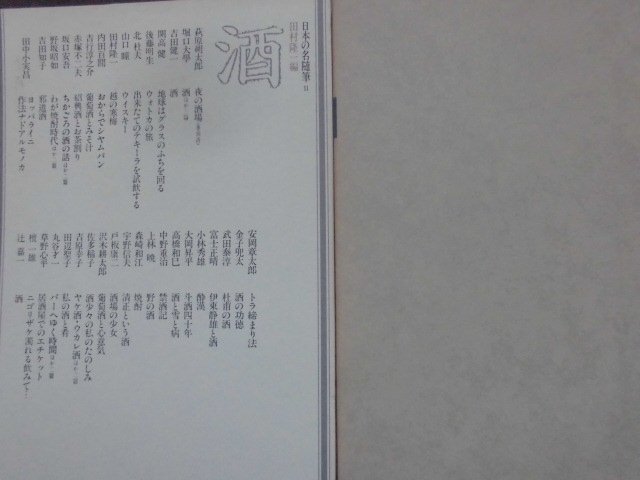 日本の名随筆 11
田村隆一編
酒
萩原朔太郎 夜の酒場
堀口大學 酒 ほか一篇
吉田健一 酒
開高健 地球はグラスのふちを回る
後藤明生 ウォトカの旅
北杜夫 出来たてのテキーラを試飲する
山口瞳 ウイスキー
田村隆一 越の寒梅
内田百閒 おからでシヤムパン
吉行淳之介 葡萄酒とみそ汁
赤塚不二夫 紹興酒とお茶割り
坂口安吾 ちかごろの酒の話
野坂昭如 わが焼酎時代
吉田知子 邪道酒
田中小実昌 ヨッパライニ作法ナドアルモノカ
安岡章太郎 トラ締まり法
金子兜太 酒の功徳
武田泰淳 杜甫の酒
富士正晴 伊東静雄と酒
小林秀雄 酔漢
大岡昇平 斗酒四十年
高橋和巳 酒と雪と病
中野重治 禁酒記
上林暁 野の酒
森崎和江 焼酎
宇野信夫 清正という酒
戸板康二 酒場の少女
沢木耕太郎 葡萄酒と心意気
佐多稲子 酒少々の私のたのしみ
吉原幸子 ヤケ酒・ウカレ酒
田辺聖子 私の酒と肴
丸谷才一 バーへゆく時間
草野心平 居酒屋でのエチケット
檀一雄 ニゴリザケ濁れる飲みて…
辻嘉一 酒